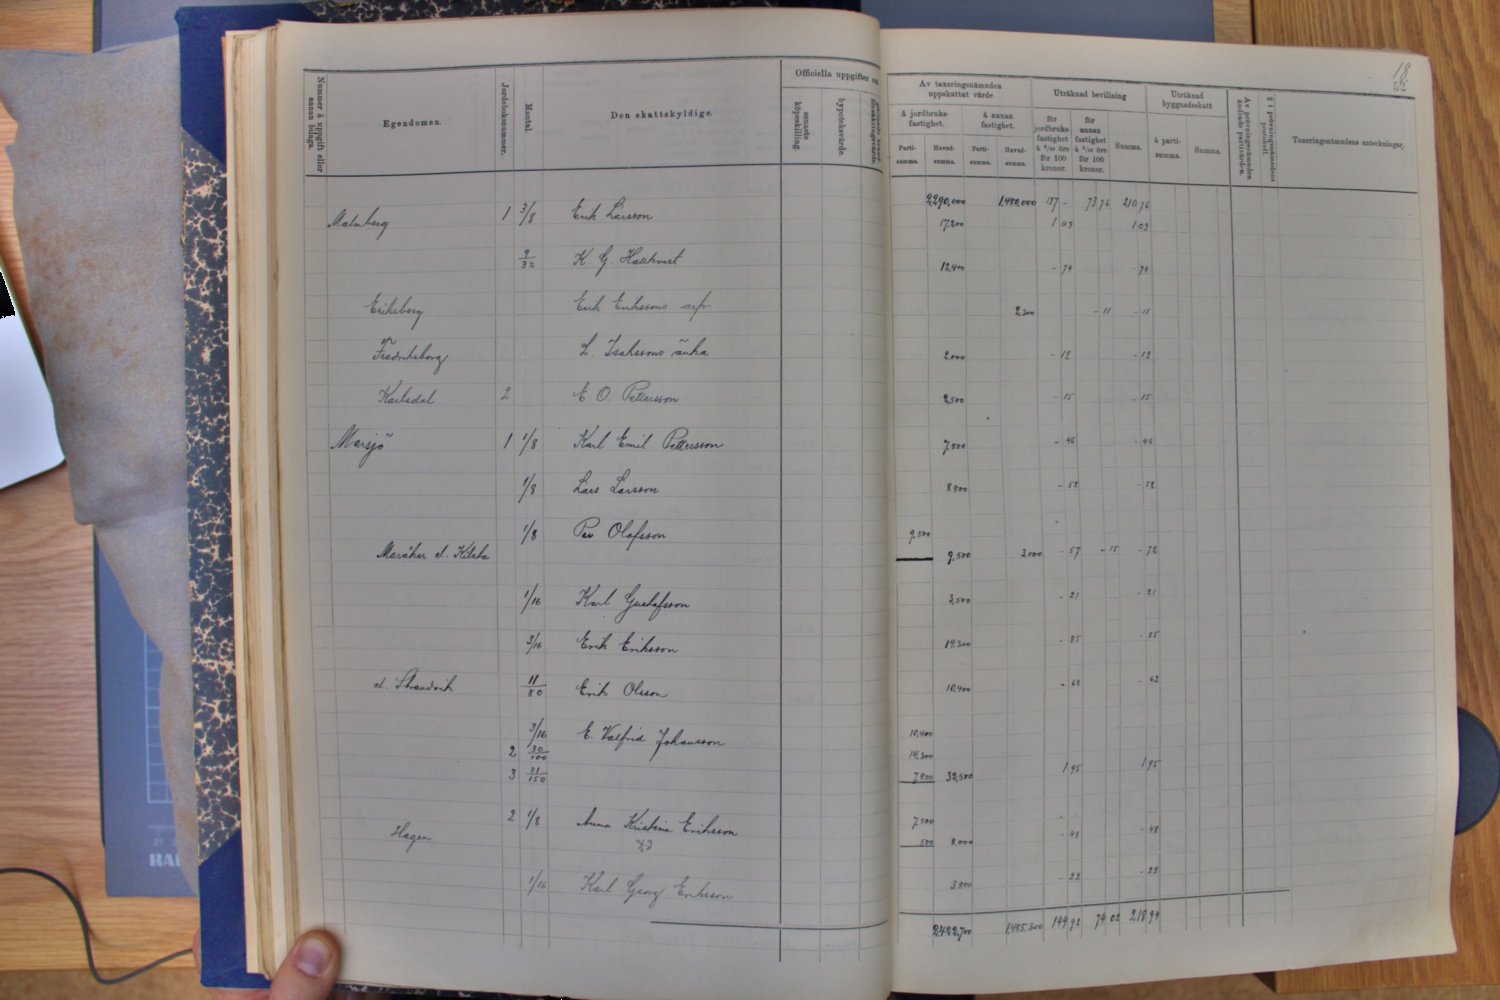 18
Nummer å uppgift eller annan bilaga.
Egendomen.
Jordeboksnummer.
Mantal.
Den skattskyldige.
Officiella uppgifter om
senaste köpeskilling.
hypoteksvärde.
Av taxeringsnämnden uppskattat värde
å jordbruks-fastighet.
å annan fastighet.
Parti-summa.
Huvud-summa.
Parti-summa.
Huvud-summa.
Uträknad bevillning
för jordbruks-fastighet å 6/10 öre för 100 kronor.
för annan fastighet å 5/10 öre för 100 kronor.
Summa.
Uträknad byggnadsskatt
å parti-summa.
Summa.
Av prövningsnämnden ändrade partivärden.
§ i prövningsnämndens protokoll.
Taxeringsnämndens anteckningar.
2,290,000 137 - 73,76 210,76
Malmberg 1 3/8 Erik Larsson 17,200 1 03 1 03
9/32 K. G. Hallkvist 12,400 - 74 - 74
Eriksberg Erik Erikssons - 11 - 11
Fredriksborg L. Isakssons änka 2,000 - 12 - 12
Karlsdal 2 E O. Pettersson 2,500 - 15 - 15
Marsjö 1 1/8 Karl Emil Pettersson 7,800 - 46 - 46
1/8 Lars Larsson 8,800 - 52 - 52
1/8 Per Olofsson 9,500
9,500 3000 - 57 - 15 - 72
1/16 Karl Gustafsson 3,500 - 21 - 21
3/16 Erik Eriksson 14,300 - 85 - 85
d. Strandvik 11/80 Erik Olsson 10,400 - 62 - 62
3/16 E. Valfrid Johansson 10,400
2 30/100 14,300
3 31/150 7,800 32,500 1,95 1,95
2 1/8 Anna Kristina Eriksson 7,500
Hagen 500 8,000 - 48 - 48
1/16 Karl Georg Eriksson 3,800 - 23 - 23
2,422,700 1,485,300 144,92 74 02 218,94